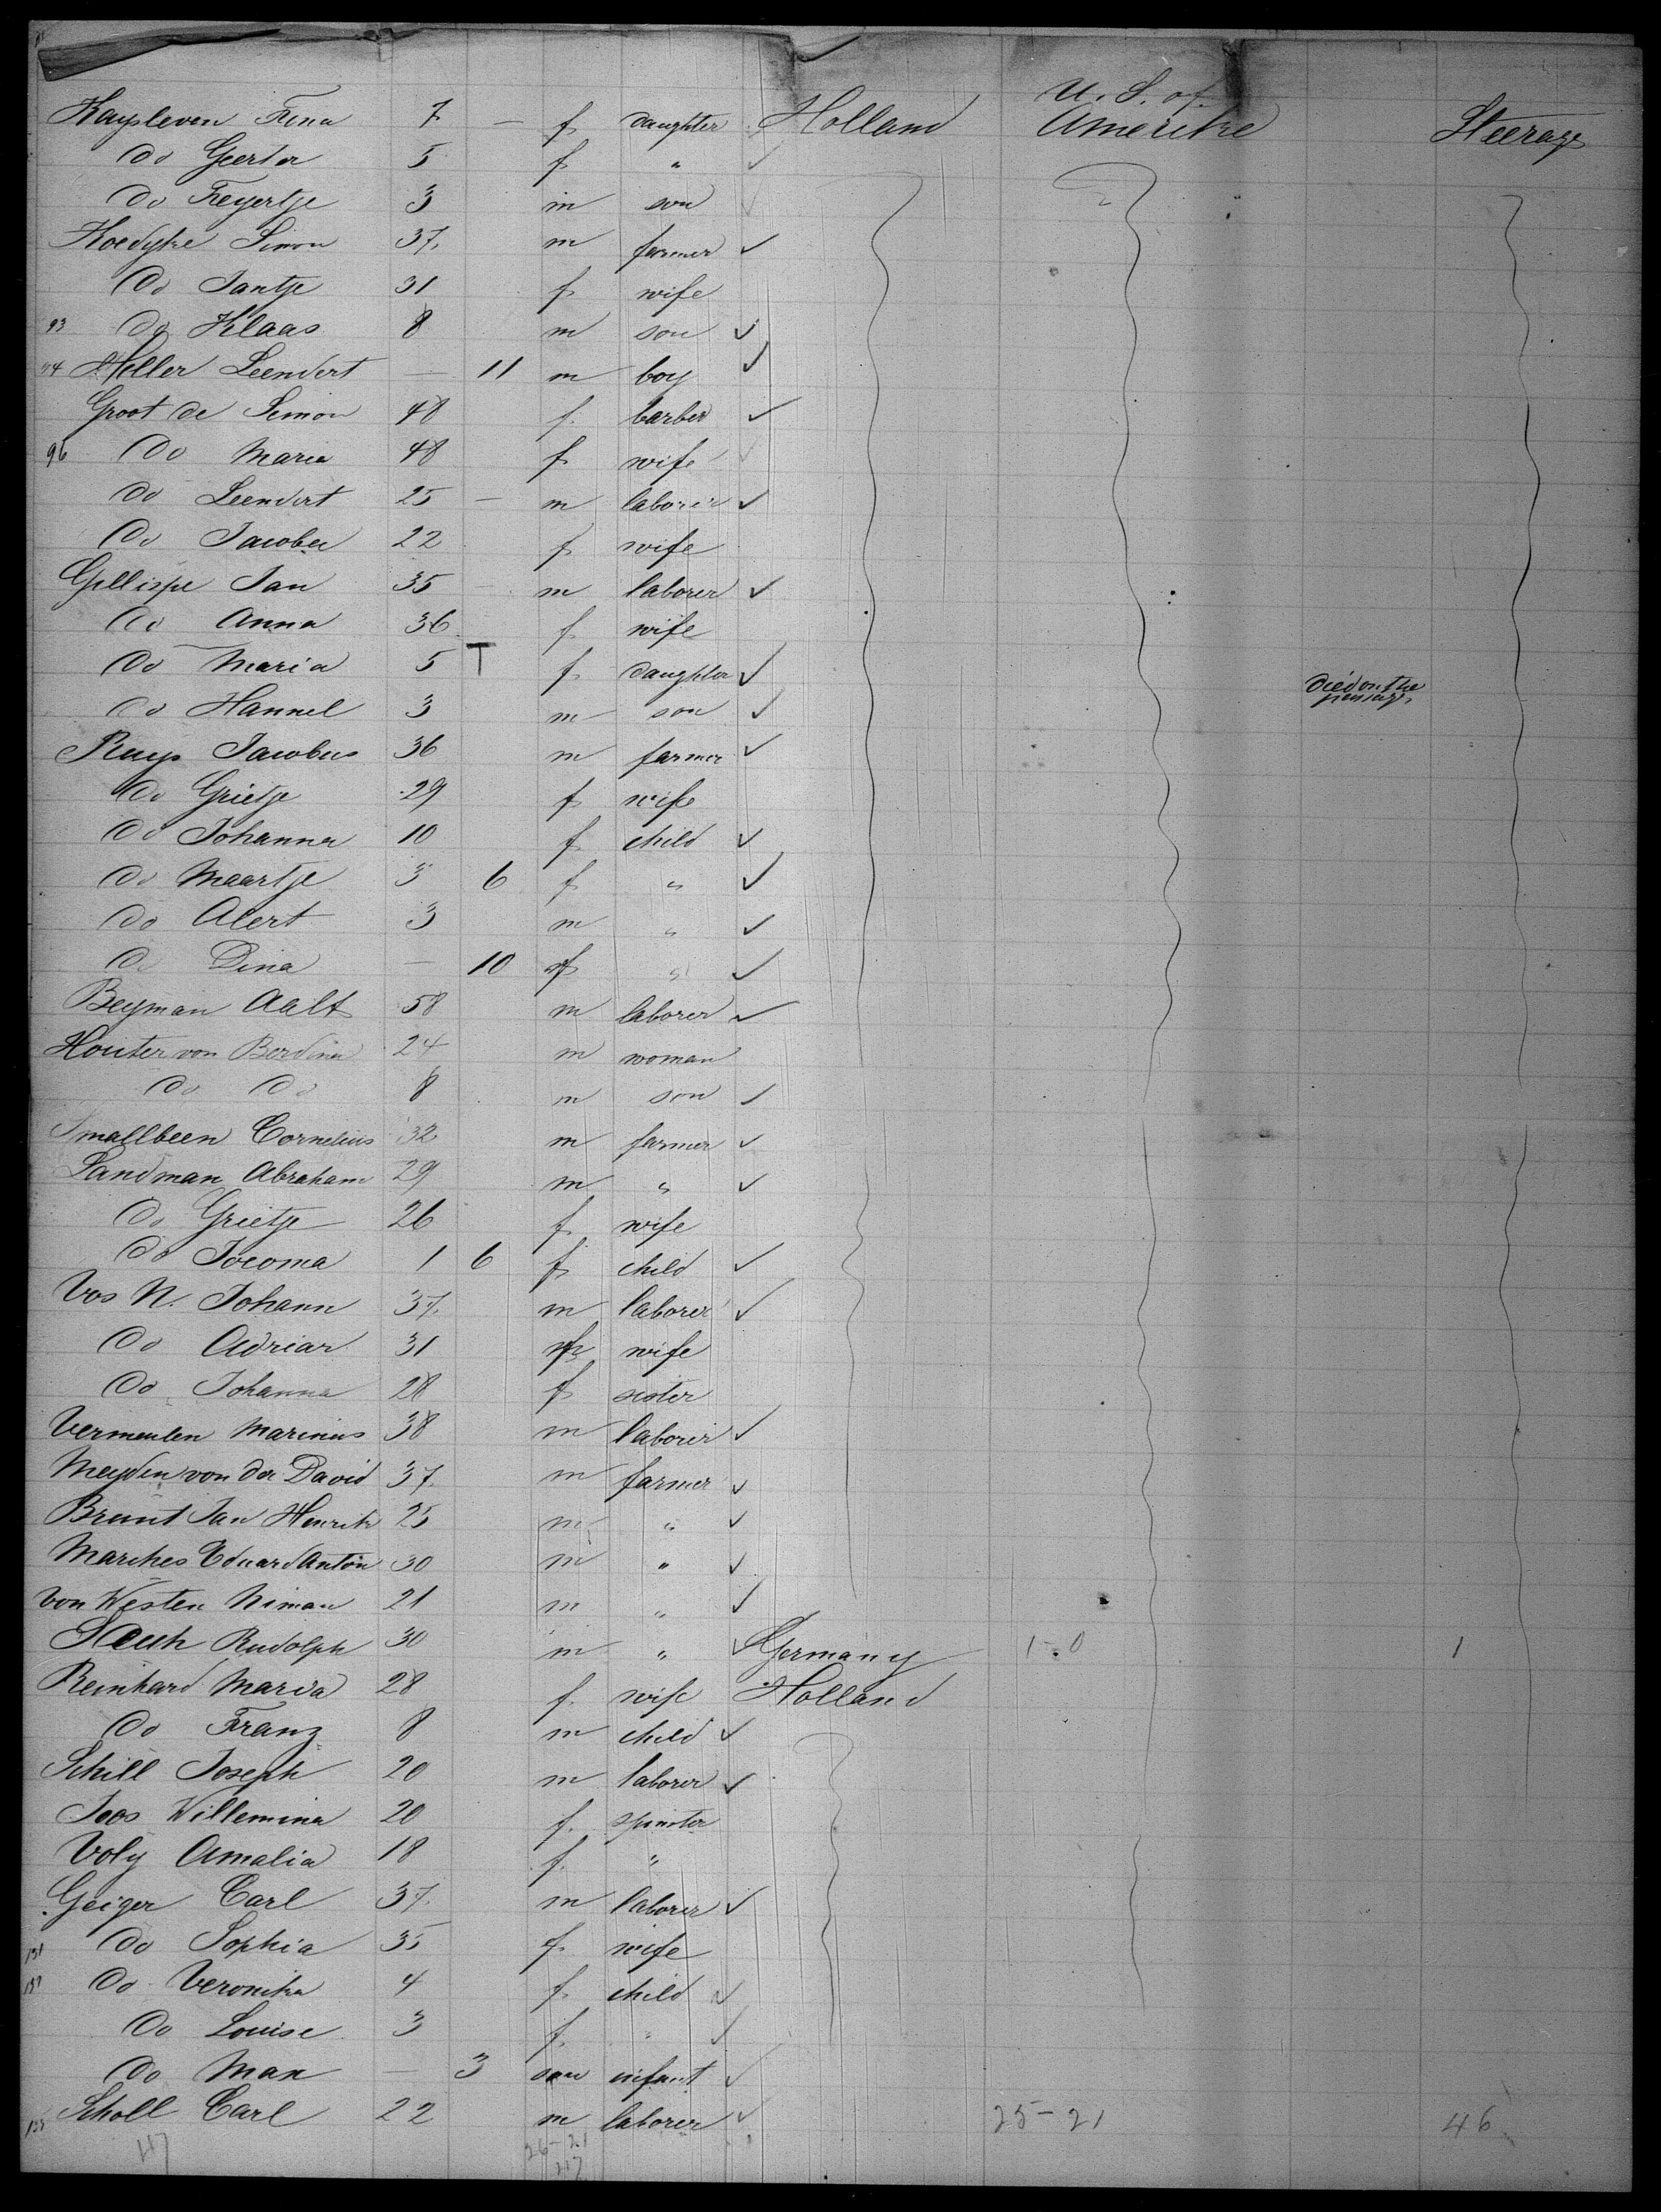 U. S. of
Kaypleven Trina 7 — f daughter Holland Amerike Steerage
do Geerta 5 f "
do Treyertje 3 m son
Koedyke Simon 37 m farmer
do Jantje 31 f wife
93 do Klaas 8 m son
94 Heller Leendert — 11 m boy
Groot de Simon 48 f. barber
96 do Maria 48 f wife
do Leendert 25 — m laborer
do Jacoba 22 f wife
Gillispe Jan 35 m laborer
do Anna 36 f wife
do Maria 5 T f daughter died on the passage
do Hannel 3 m son
Ruys Jacobus 36 m farmer
do Grietje 29 f wife
do Johanna 10 f child
do Maartje 3 6 f "
do Alert 3 m "
do Dina — 10 f "
Beyman Aalt 58 m laborer
Houter von Berdina 24 m woman
do do 8 m son
Smallbeen Cornelius 32 m farmer
Landman Abraham 29 m "
do Grietje 26 f wife
do Jocoma 1 6 f child
Vos N. Johann 37 m laborer
do Adriar 31 f wife
do Johanna 28 f sister
Vermeulen Marinus 38 m laborer
Meyden von der David 37 m farmer
Brunt Jan Henrik 25 m "
Marches Eduard Anton 30 m "
von Westen Niman 21 m "
Rudolph 30 m " Germany 1-0 1
Reinhard Maria 28 f. wife Holland
do Franz 8 m child
Schill Joseph 20 m laborer
Joos Willemina 20 f. spinster
Voly Amalia 18 f. "
Geiger Carl 37 m laborer
131 do Sophia 35 f wife
do Veronika 4 f child
do Louise 3 f. "
do Max — 3 son infant
Scholl Carl 22 m laborer 25-21 46
117 26-21